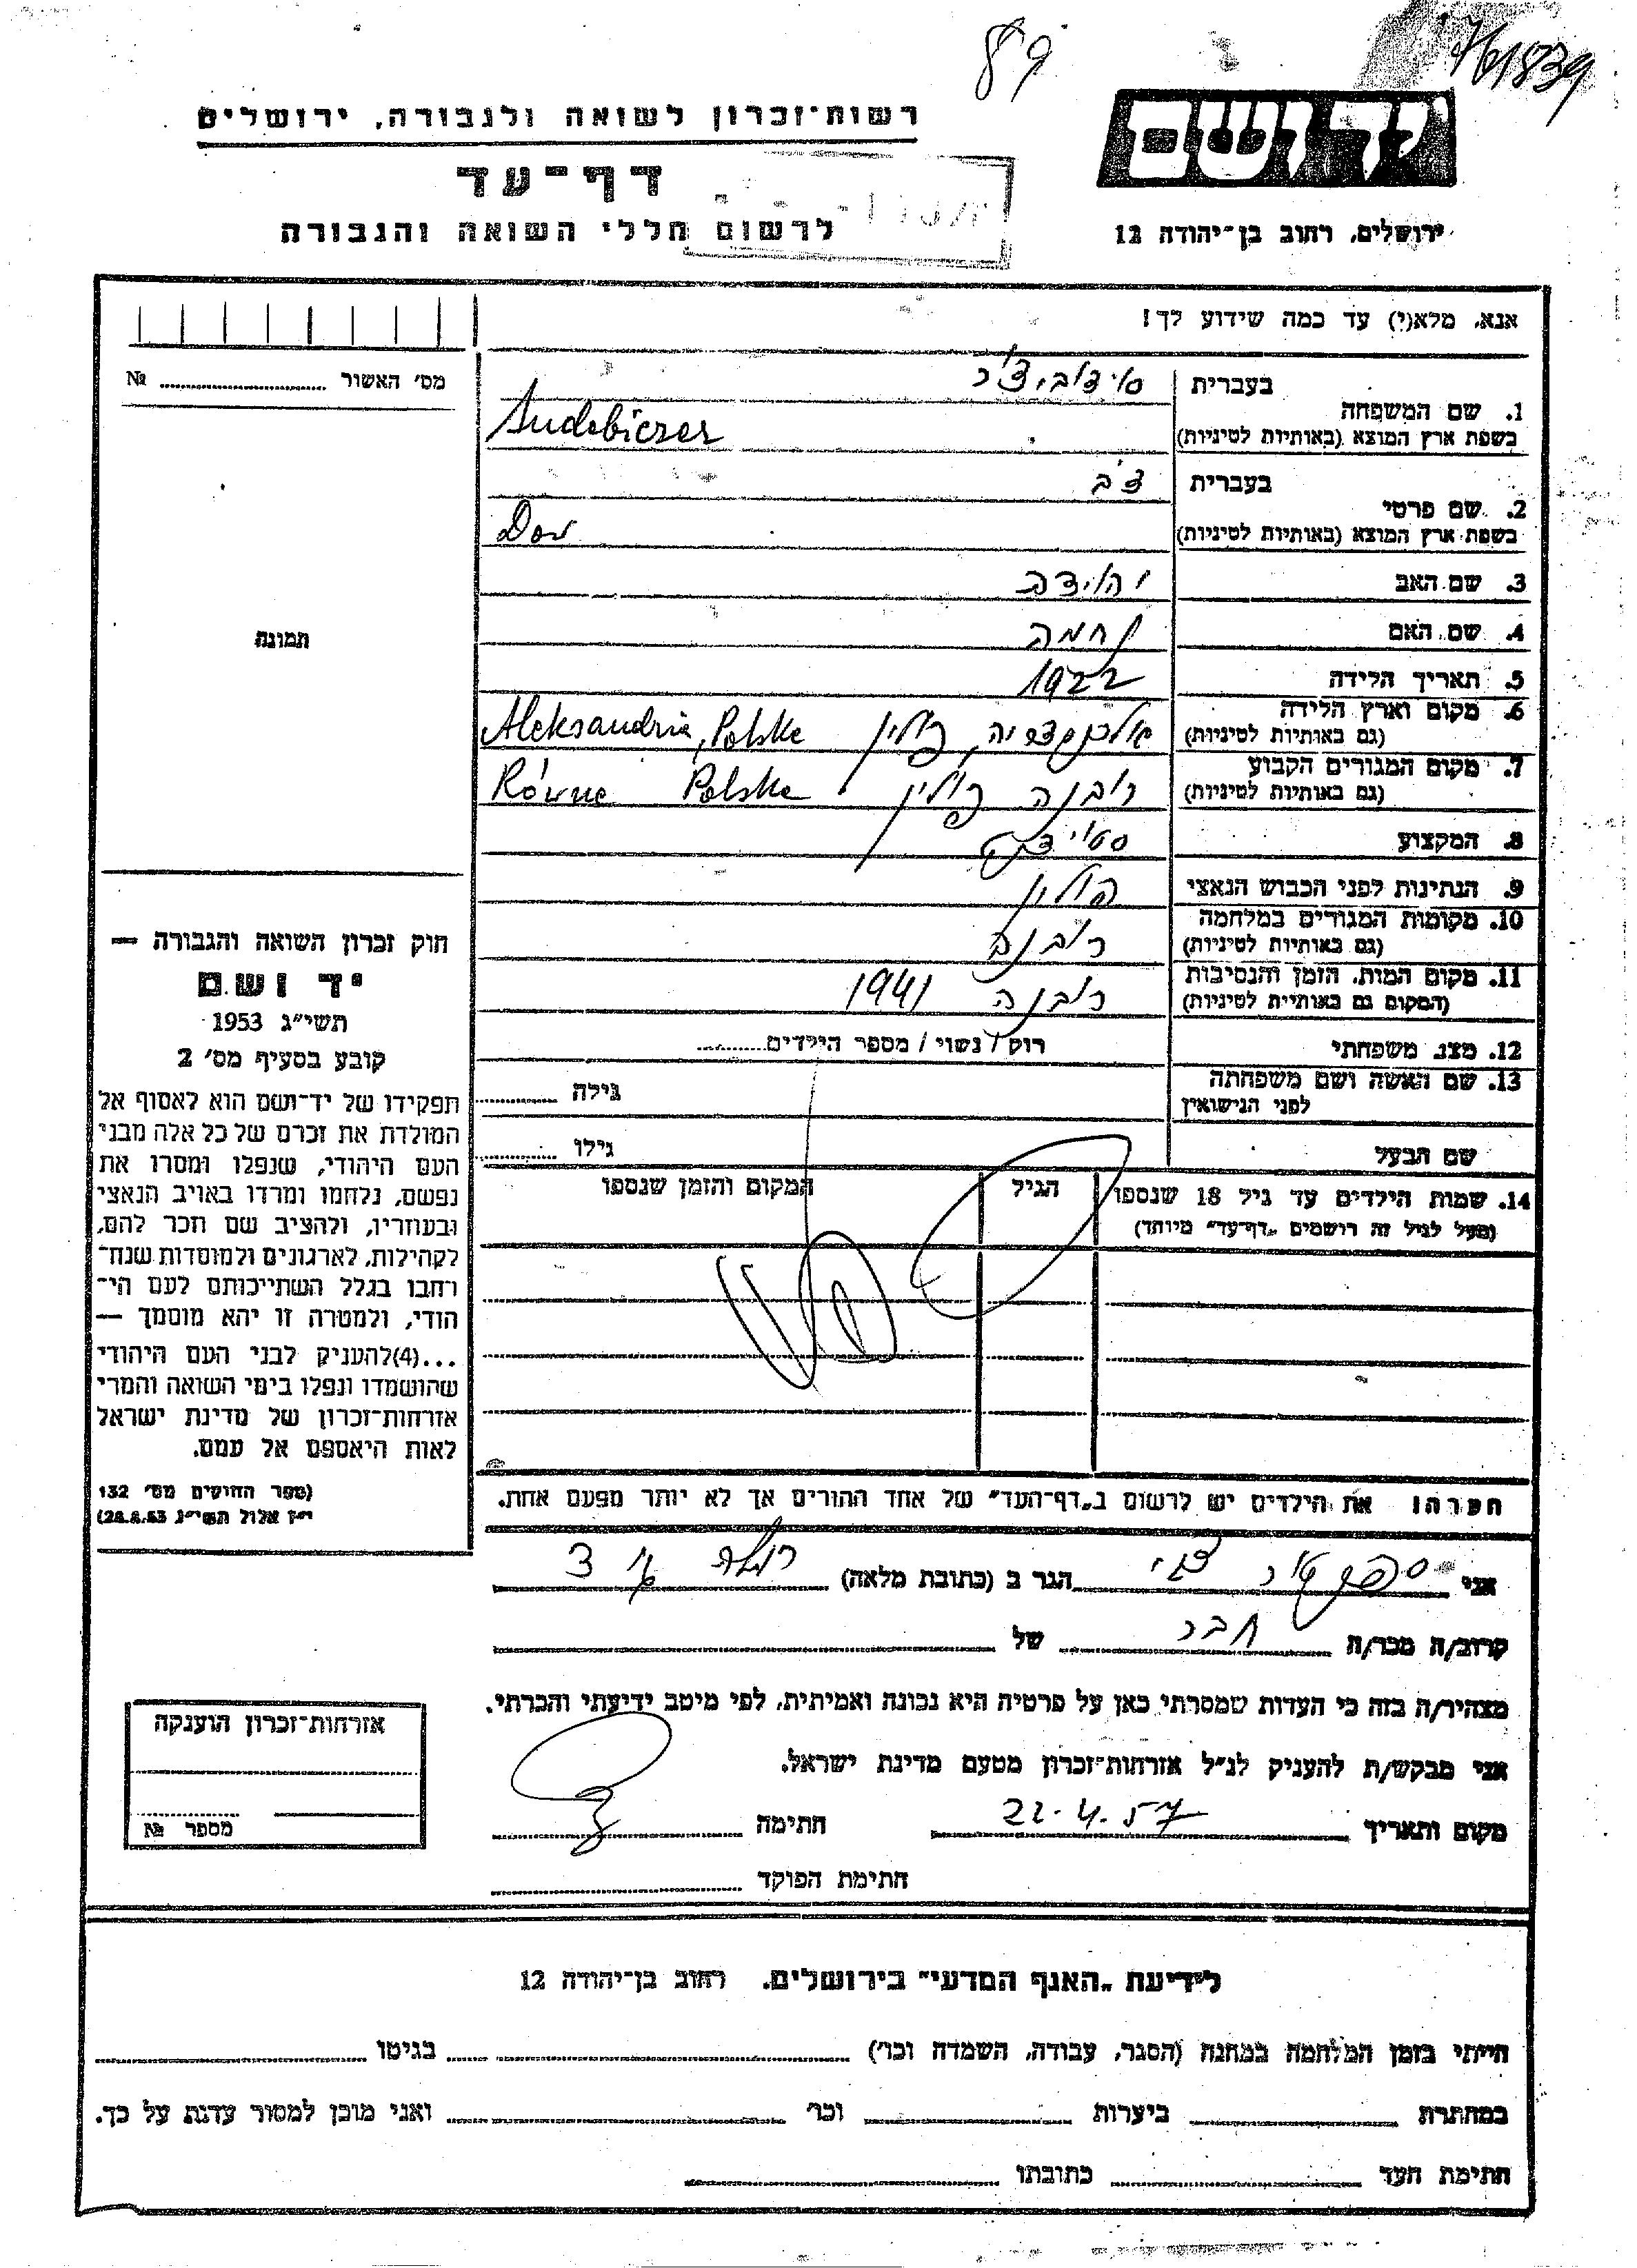 89
761839
יד ושם
ירושלים, רחוב בן־יהודה 12
רשות־זכרון לשואה ולגבורה, ירושלים
דף־עד
לרשום חללי השואה והגבורה
אנא, מלא(י) עד כמה שידוע לך!
מס׳ האשור №
1. שם המשפחה
בעברית
בשפת ארץ המוצא (באותיות לטיניות) Sudobiczer
2. שם פרטי
בעברית דב
בשפת ארץ המוצא (באותיות לטיניות) Dov
3. שם האב יהודה
4. שם האם נחמה
5. תאריך הלידה 1922
6. מקום וארץ הלידה
(גם באותיות לטיניות) אלכסנדריה, פולין Aleksandria, Polska
7. מקום המגורים הקבוע
(גם באותיות לטיניות) רובנה פולין Równe Polska
8. המקצוע סטודנט
9. הנתינות לפני הכבוש הנאצי פולין
10. מקומות המגורים במלחמה
(גם באותיות לטיניות) רובנה
11. מקום המות, הזמן והנסיבות
(המקום גם באותיות לטיניות) רובנה 1941
12. מצב משפחתי רוק / נשוי / מספר הילדים
13. שם האשה ושם משפחתה
לפני הנישואין גילה
שם הבעל גילו
14. שמות הילדים עד גיל 18 שנספו הגיל המקום והזמן שנספו
(מעל לגיל זה רושמים „דף־עד״ מיוחד)
תמונה
חוק זכרון השואה והגבורה —
יד ושם
תשי״ג 1953
קובע בסעיף מס׳ 2
תפקידו של יד־ושם הוא לאסוף אל
המולדת את זכרם של כל אלה מבני
העם היהודי, שנפלו ומסרו את
נפשם, נלחמו ומרדו באויב הנאצי
ובעוזריו, ולהציב שם וזכר להם,
לקהילות, לארגונים ולמוסדות שנח־
רחבו בגלל השתייכותם לעם הי־
הודי, ולמטרה זו יהא מוסמך —
...(4)להעניק לבני העם היהודי
שהושמדו ונפלו בימי השואה והמרי
אזרחות־זכרון של מדינת ישראל
לאות היאספם אל עמם.
(ספר החוקים מס׳ 132
י״ז אלול תשי״ג 28.8.53)
הערה! את הילדים יש לרשום ב„דף־העד״ של אחד ההורים אך לא יותר מפעם אחת.
אני ספקטור צבי הגר ב (כתובת מלאה)
קרוב/ה מכר/ה חבר של
מצהיר/ה בזה כי העדות שמסרתי כאן על פרטיה היא נכונה ואמיתית, לפי מיטב ידיעתי והכרתי.
אני מבקש/ת להעניק לנ״ל אזרחות־זכרון מטעם מדינת ישראל.
מקום ותאריך 22.4.57 חתימה
חתימת הפוקד
אזרחות־זכרון הוענקה
מספר №
לידיעת „האגף המדעי״ בירושלים. רחוב בן־יהודה 12
הייתי בזמן המלחמה במחנה (הסגר, עבודה, השמדה וכו׳) בגיטו
במחתרת ביערות וכו׳ ואני מוכן למסור עדות על כך.
חתימת העד כתובתו